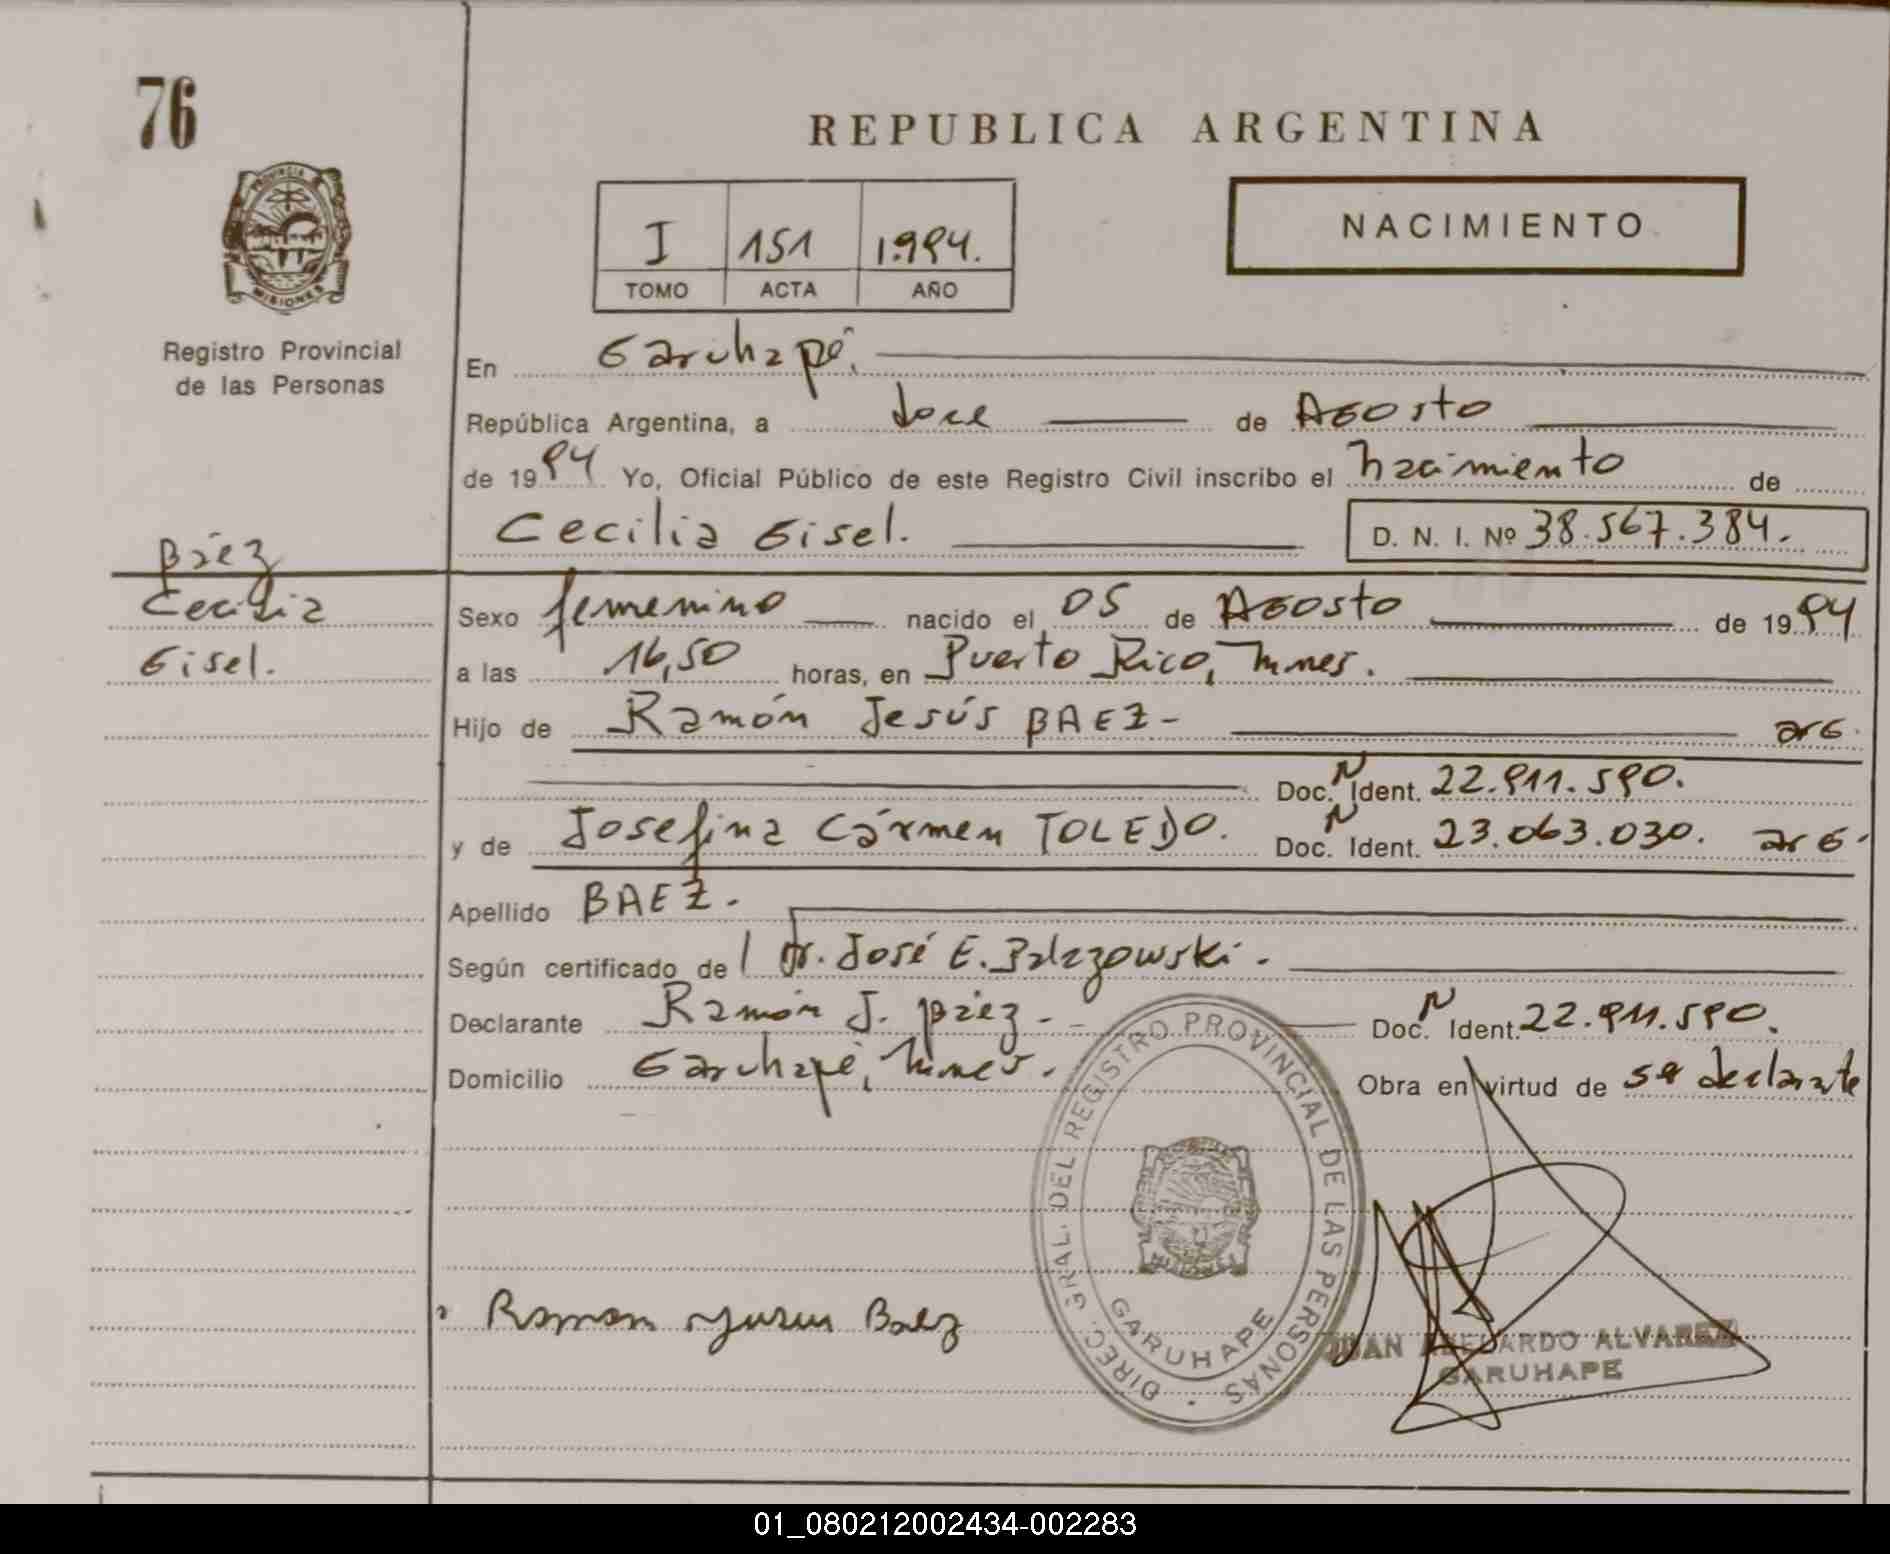 76
REPUBLICA ARGENTINA
PROVINCIA DE
MISIONES
Registro Provincial
de las Personas
NACIMIENTO
I 151 1.994.
TOMO ACTA AÑO
En Garuhapé.
República Argentina, a doce de Agosto
de 1994 Yo, Oficial Público de este Registro Civil inscribo el nacimiento de
Cecilia Gisel. D. N. I. Nº 38.567.384.
Báez
Cecilia
Gisel.
Sexo femenino nacido el 05 de Agosto de 1994
a las 16,50 horas, en Puerto Rico, Mnes.
Hijo de Ramón Jesús BAEZ- arg.
Doc. N Ident. 22.911.590.
y de Josefina Cármen TOLEDO. Doc. N Ident. 23.063.030. arg.
Apellido BAEZ.
Según certificado de l Dr. José E. Palazowski.
Declarante Ramón J. Báez- Doc. N Ident. 22.911.590.
Domicilio Garuhapé, Mnes. Obra en virtud de ser declarante
DIREC. GRAL. DEL REGISTRO PROVINCIAL DE LAS PERSONAS
GARUHAPE
Ramon Jesus Baez
JUAN ABELARDO ALVAREZ
GARUHAPE
01_080212002434-002283